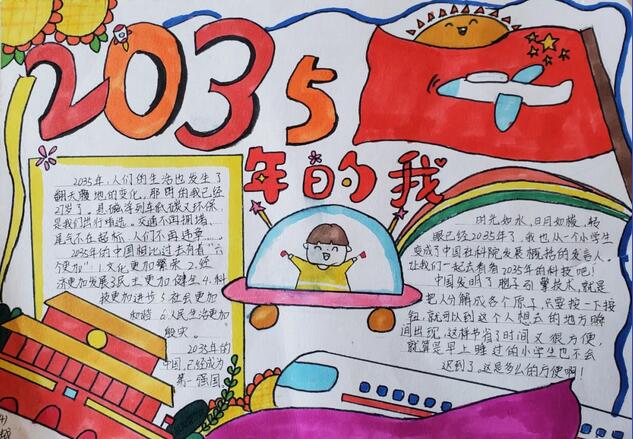 2035
年的我
2035年,人们的生活也发生了
翻天覆地的变化,那时的我已经
27岁了。磁悬浮列车低碳又环保,
是我们出行首选。交通不再拥堵,
尾气不在超标,人们不再违章……
2035年的中国相比过去有着“六
个更加”1.文化更加繁荣 2.经
济更加发展3.民主更加健全4.科
技更加进步5.社会更加
和谐 6.人民生活更加
殷实。
2035年的
中国,已经成为
第一强国
时光如水,日月如梭,转
眼已经2035年了,我也从一个小学生
变成了中国社科院发展概括的发言人。
让我们一起去看看2035年的科技吧!
中国发明了胞子引擎技术,就是
把人分解成各个原子,只要按一下按
钮,就可以到这个人想去的地方瞬
间出现,这样节省了时间又很方便,
就算是早上睡过的小学生也不会
迟到了。这是多么的方便啊!